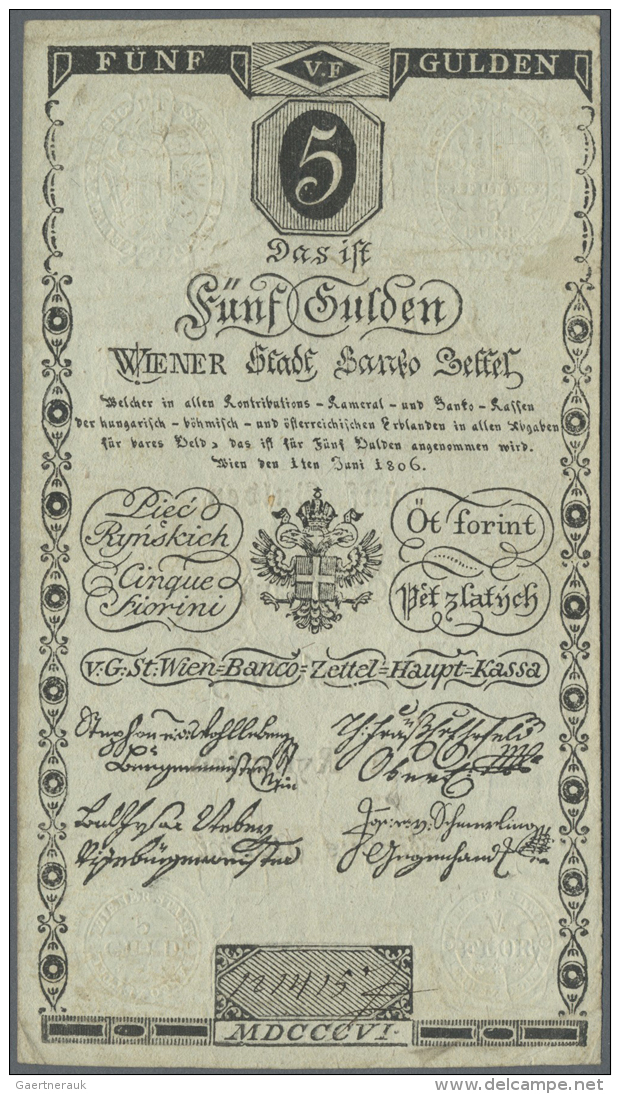 FÜNF V.F GULDEN
5
Das ist
Fünf Gulden
WIENER Stadt Banko Zettel
Welcher in allen Kontributions - Kameral - und Banko - Kassen
der hungarisch - böhmisch - und österreichischen Erblanden in allen Abgaben
für bares Geld, das ist für Fünf Gulden angenommen wird.
Wien den 1ten Juni 1806.
Pieć
Ryńskich
Öt forint
Cinque
Fiorini
Pět zlatých
v. G: St: Wien=Banco=Zettel=Haupt=Kassa
Stephan
Burgermeister
Ober
Jos: v. Schmerling
Gegenhand
121415
MDCCCVI.
Gaertnerauk
www.delcampe.net